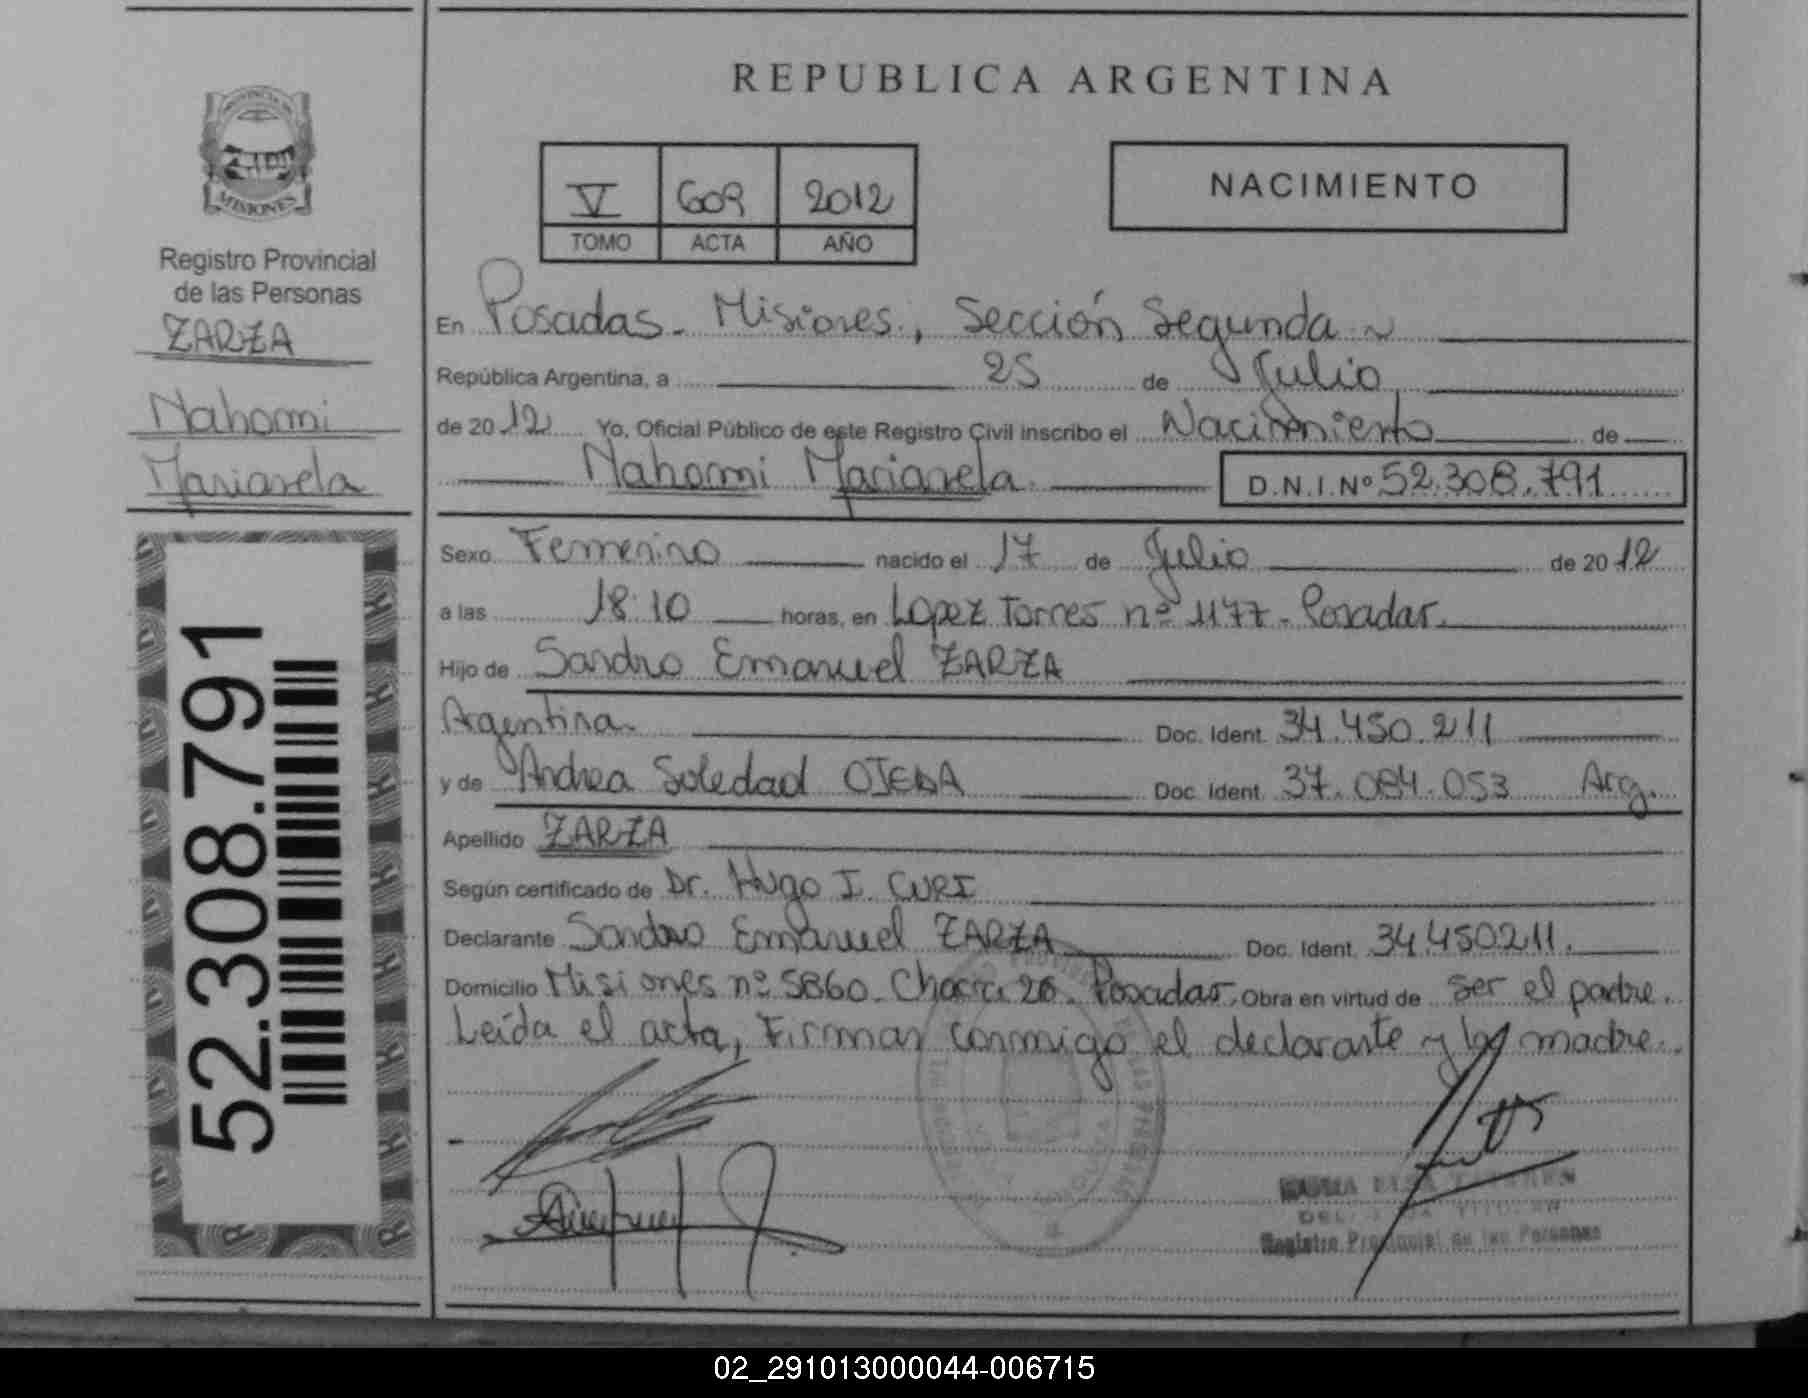 PROVINCIA DE
MISIONES
Registro Provincial
de las Personas
ZARZA
Nahomi
Marianela
52.308.791
REPUBLICA ARGENTINA
V 609 2012
TOMO ACTA AÑO
NACIMIENTO
En Posadas - Misiones, Sección Segunda
República Argentina, a 25 de Julio
de 2012 Yo, Oficial Público de este Registro Civil inscribo el Nacimiento de
Nahomi Marianela D.N.I.Nº 52.308.791
Sexo Femenino nacido el 17 de Julio de 2012
a las 18:10 horas, en Lopez Torres nº 1177 - Posadas.
Hijo de Sandro Emanuel ZARZA
Argentina Doc. Ident. 34.450.211
y de Andrea Soledad OJEDA Doc. Ident. 37.084.053 Arg.
Apellido ZARZA
Según certificado de Dr. Hugo I. CURI
Declarante Sandro Emanuel ZARZA Doc. Ident. 34.450211.
Domicilio Misiones nº 5860. Chacra 26. Posadas. Obra en virtud de ser el padre.
Leída el acta, Firman conmigo el declarante y la madre.
Registro Provincial de las Personas
02_291013000044-006715